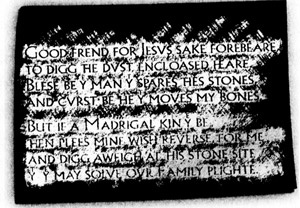 GOOD FREND FOR JESUS SAKE FOREBEARE
TO DIGG HE DVST ENCLOASED HEARE
BLESE BE Y MAN Y SPARES HES STONES
AND CVRST BE HE Y MOVES MY BONES
BUT IF A MADRIGAL KIN Y BE
THEN PLEES MINE WISH REVERSE FOR ME
AND DIGG AWEIGH AT HIS STONE SITE
Y Y MAY SOLVE OVR FAMILY PLIGHTE